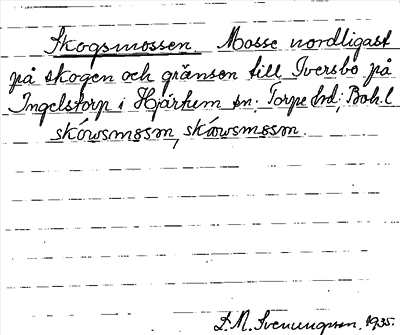 Skogsmossen Mosse nordligast
på skogen och gränsen till Iversbo på
Ingelstorp i Hjärtum sn; Torpe hd; Boh.l
skówsmosm, skåwsmosm.
S. M. Svenungsson. 1935.